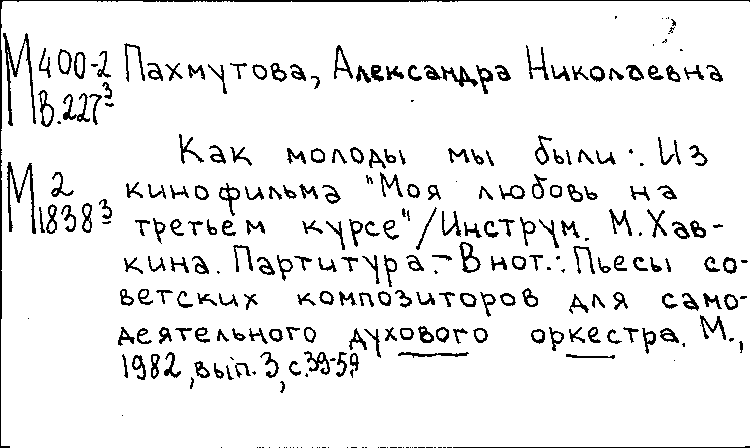 М 400-2 Пахмутова, Александра Николаевна
В.227³
Как молоды мы были: Из
М 2 кинофильма "Моя любовь на
1838³ третьем курсе"/Инструм. М.Хав-
кина. Партитура.- В нот.: Пьесы со-
ветских композиторов для само-
деятельного духового оркестра. М.,
1982, вып. 3, с.39-59